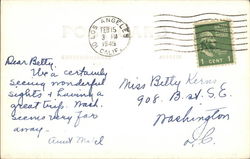 LOS ANGELES
FEB 15
3 PM
1945
CALIF.
1 CENT
Dear Betty,
We are certainly
seeing wonderful
sights & having a
great trip. Wash.
seems very far
away.
Aunt
Miss Betty Kerns
908 B. St. S.E.
Washington
D.C.